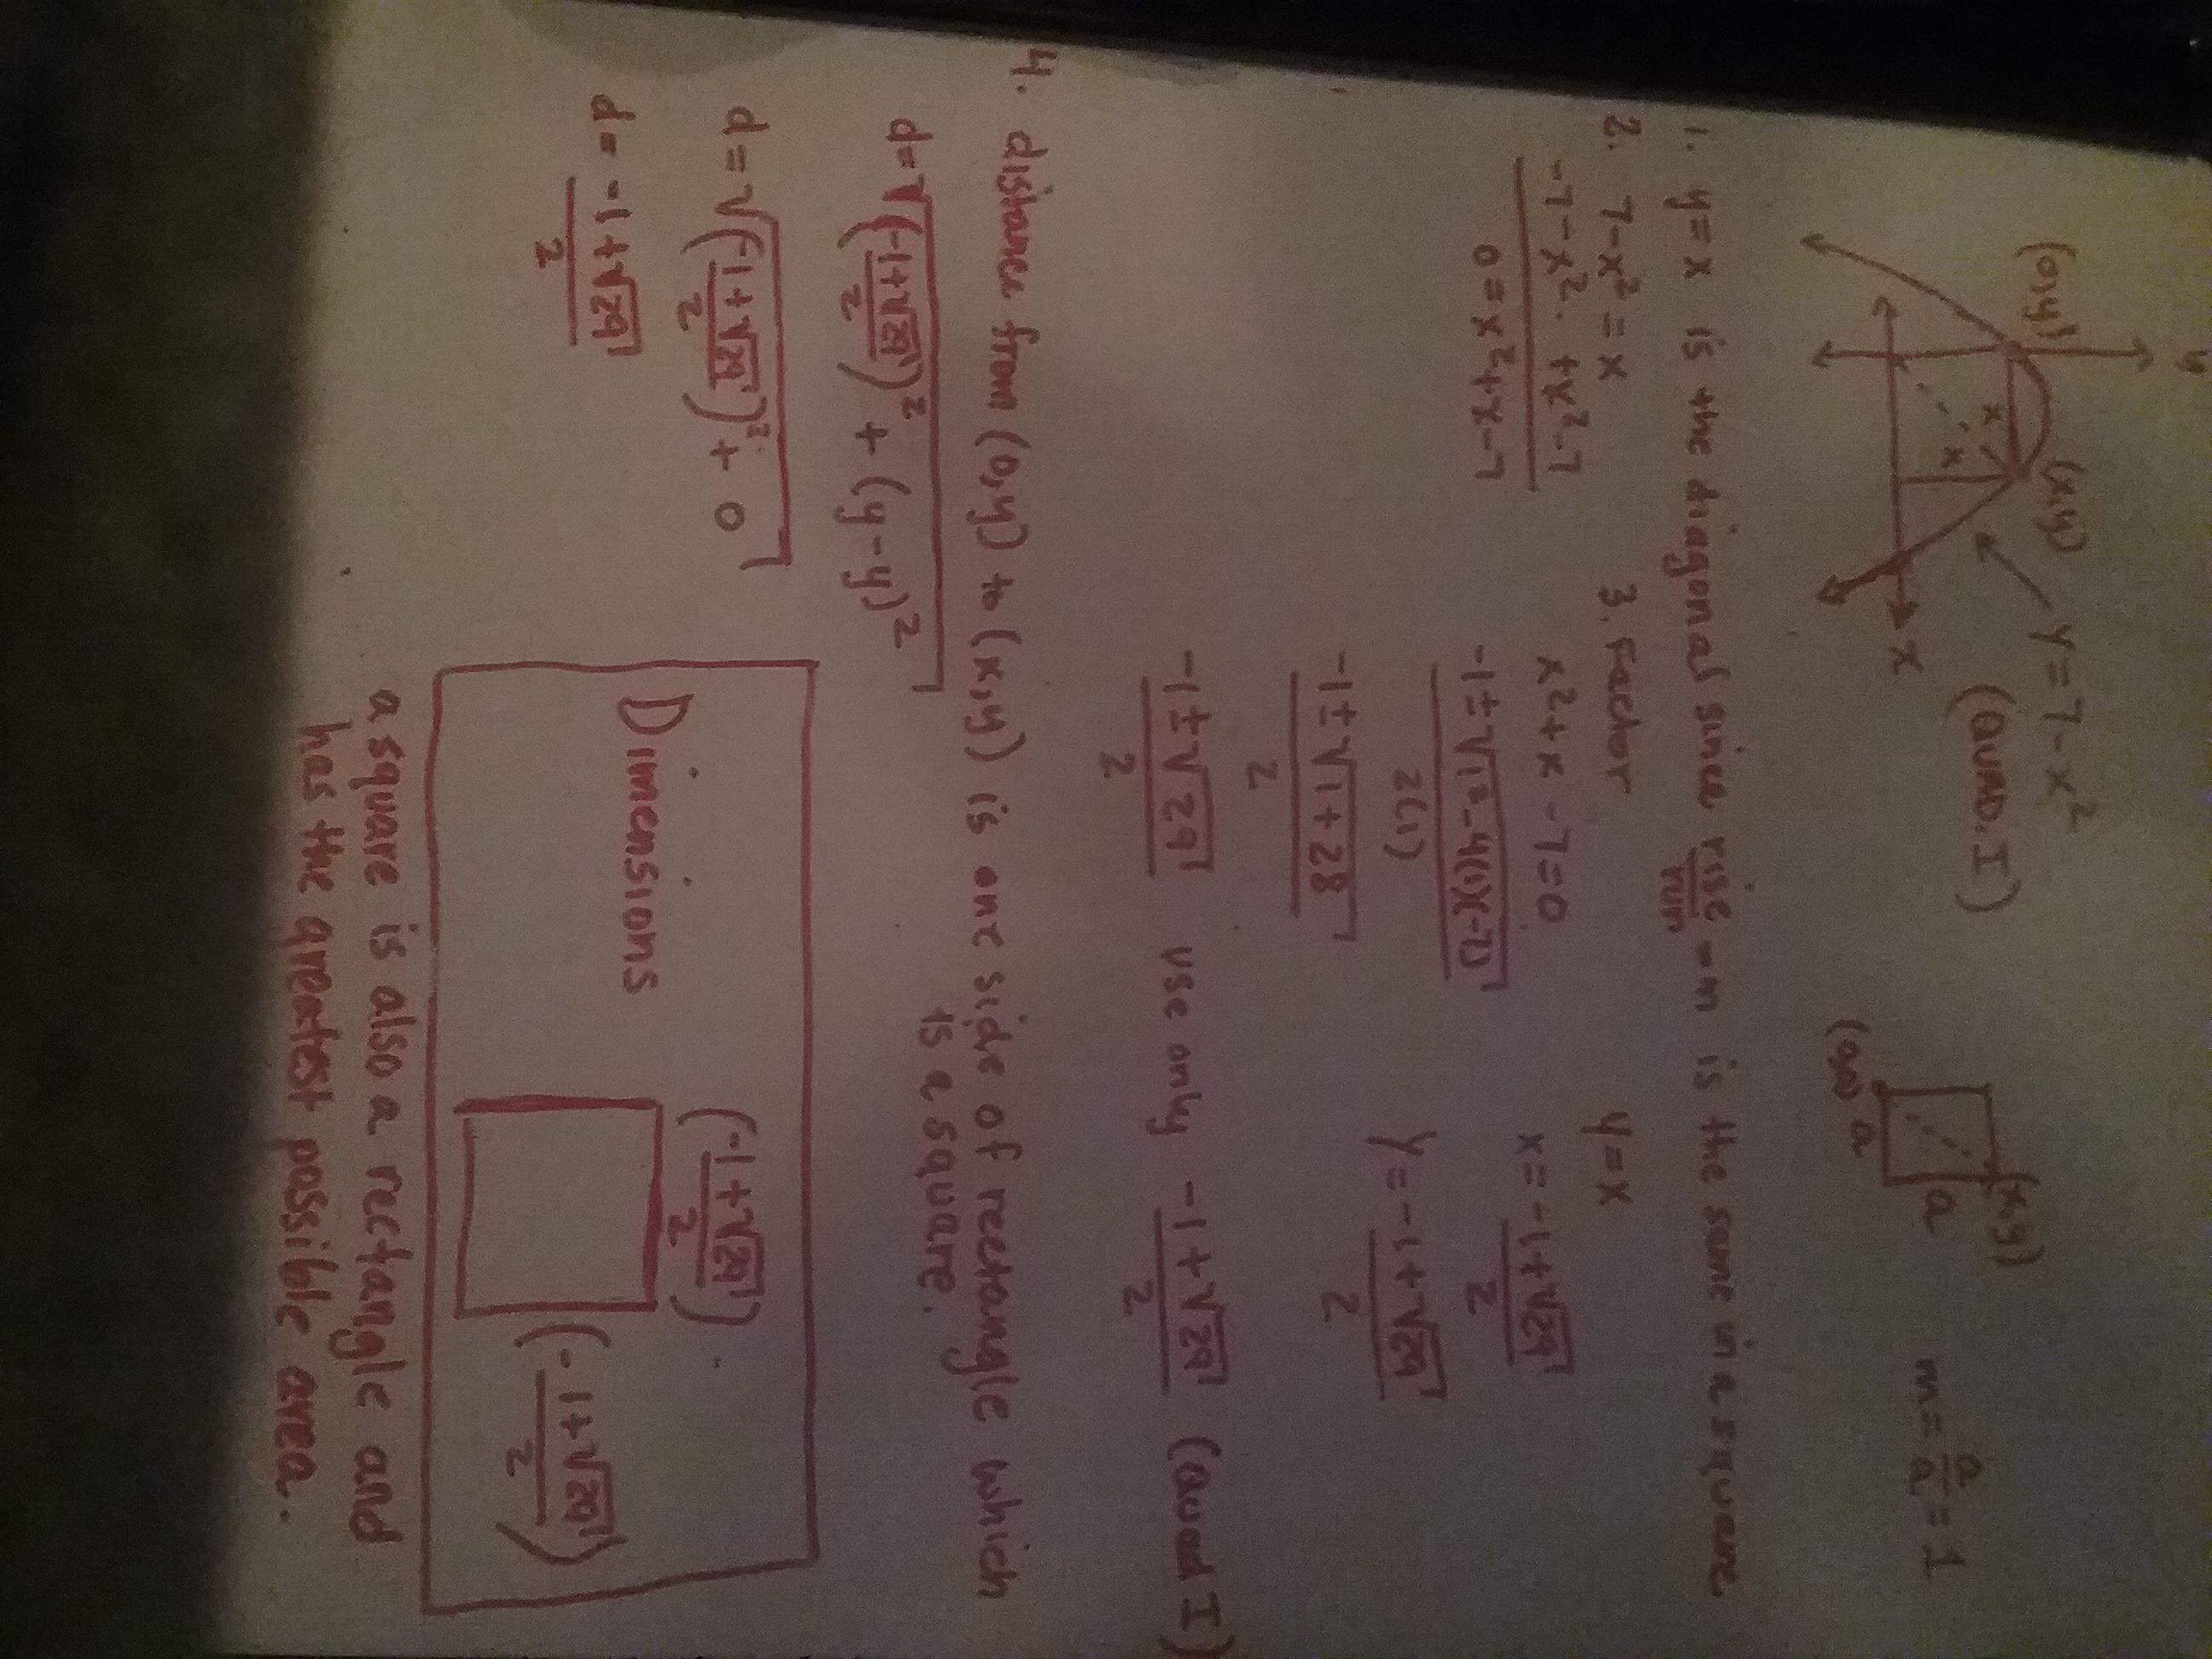 y
(0,y) (x,y) y=7-x²
(QUAD. I)
x
x
x
(x,y)
a
(0,0) a
m=a/a=1
1. y=x is the diagonal since rise/run=m is the same in a square
2. 7-x²=x
-7-x². +x²-7
0=x²+x-7
3. Factor
x²+x-7=0
-1±√1²-4(1)(-7)
2(1)
-1±√1+28
2
-1±√29
2
use only -1+√29/2 (Quad I)
y=x
x=-1+√29
2
y=-1+√29
2
4. distance from (0,y) to (x,y) is one side of rectangle which
is a square.
d=√(-1+√29/2)²+(y-y)²
d=√(-1+√29/2)²+0
d=-1+√29
2
Dimensions
(-1+√29/2)
(-1+√29/2)
a square is also a rectangle and
has the greatest possible area.